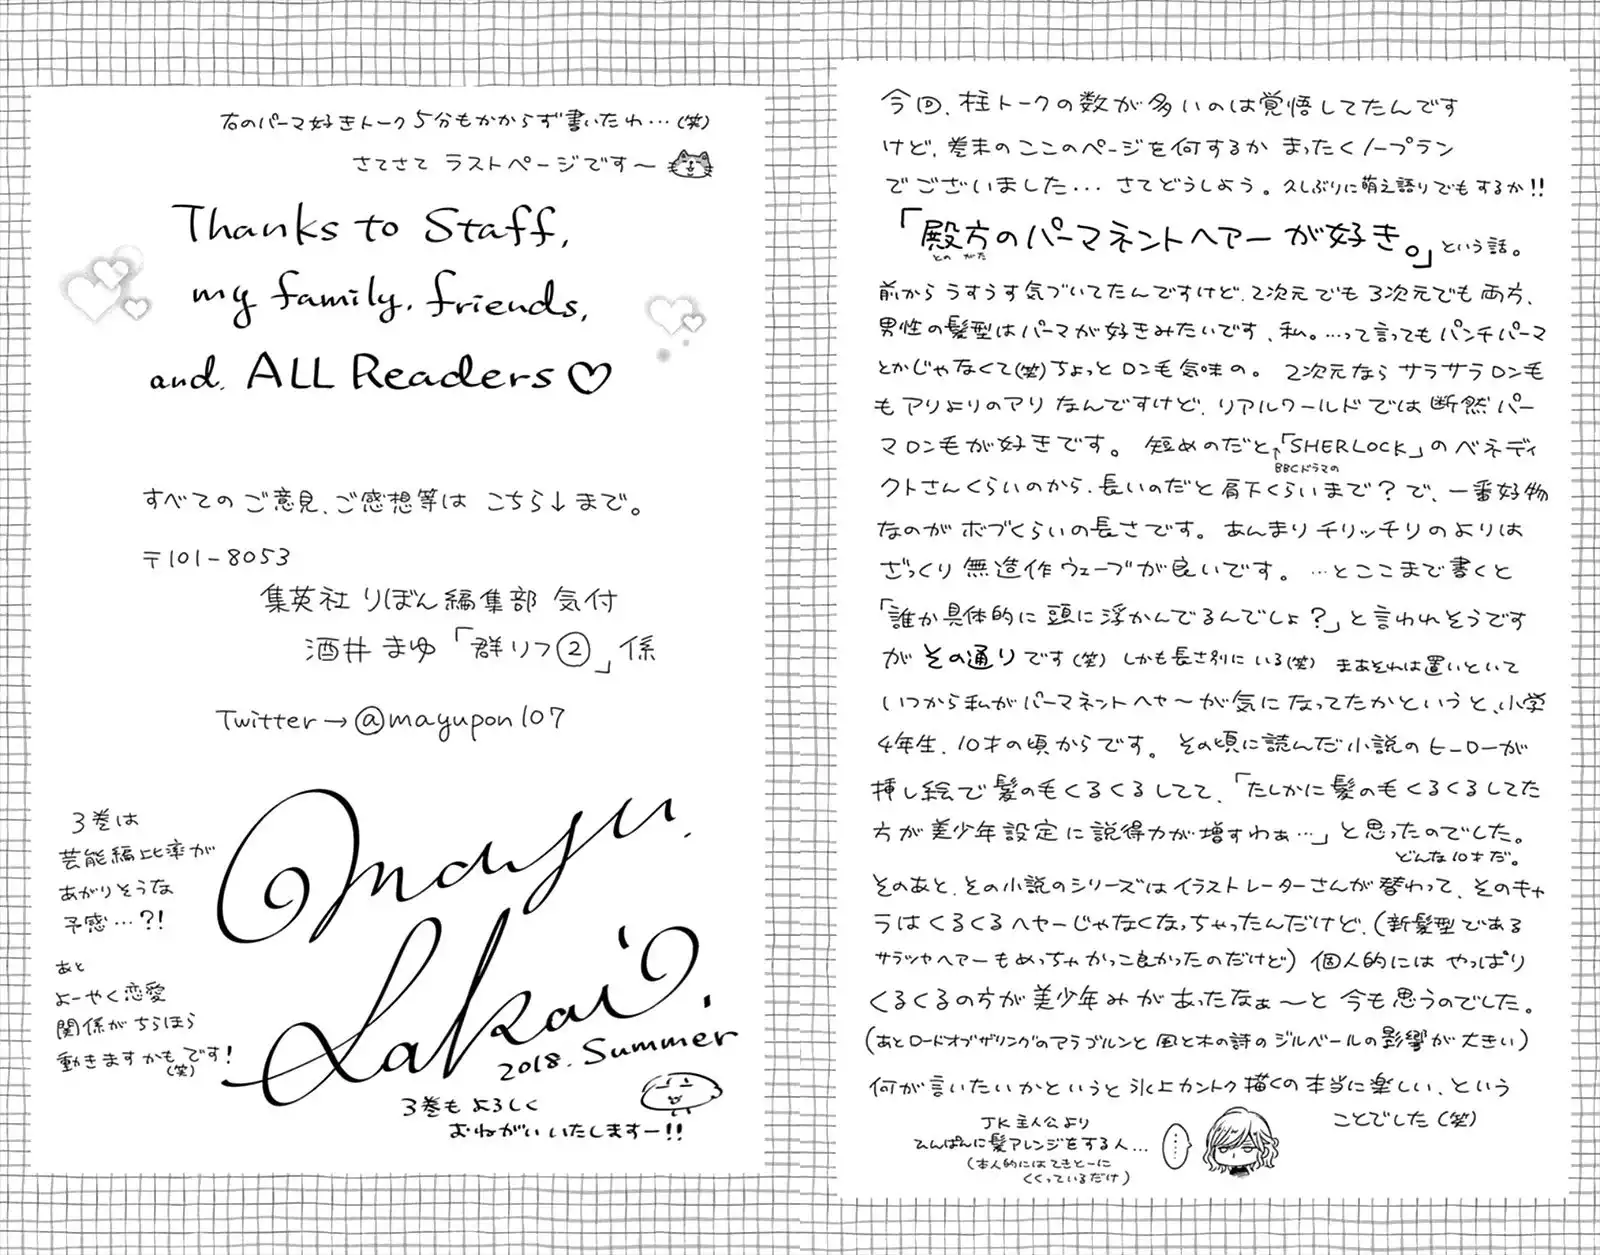 今回、柱トークの数が多いのは覚悟してたんです
けど、巻末のここのページを何するか まったくノープラン
でございました... さてどうしよう。久しぶりに萌え語りでもするか!!
「殿方のパーマネントヘアーが好き。」という話。
とのがた
前から うすうす気づいてたんですけど、2次元でも 3次元でも 両方、
男性の髪型はパーマが好きみたいです、私。...って言っても パンチパーマ
とかじゃなくて(笑)ちょっと ロン毛気味の。 2次元なら サラサラロン毛
も アリよりのアリ なんですけど、リアルワールドでは 断然 パー
マロン毛が好きです。 短めのだと、「SHERLOCK」の ベネディ
↑BBCドラマの
クトさんくらいのから、長いのだと 肩下くらいまで?で、一番好物
なのが ボブくらいの長さです。 あんまり チリッチリの よりは
ざっくり 無造作ウェーブが良いです。 ...と ここまで 書くと
「誰か具体的に 頭に浮かんでるんでしょ?」と 言われそうです
が その通り です(笑) しかも長さ別に いる(笑) まあそれは置いといて
いつから私が パーマネントヘヤ〜が気に なってたかというと、小学
4年生、10才の頃からです。 その頃に読んだ小説の ヒーローが
挿し絵で 髪の毛くるくるしてて、「たしかに髪の毛くるくるしてた
方が 美少年設定に説得力が増すわぁ...」と思ったのでした。
どんな10才だ。
そのあと、その小説のシリーズは イラストレーターさんが 替わって、そのキャ
ラは くるくるヘヤーじゃなくなっちゃったんだけど、(新髪型である
サラツヤヘアーもめっちゃかっこ良かったのだけど) 個人的には やっぱり
くるくるの方が 美少年みが あったなぁ〜と 今も 思うのでした。
(あとロードオブザリングのアラゴルンと 風と木の詩の ジルベールの影響が大きい)
何が言いたいかというと 氷上カントク描くの本当に楽しい、という
ことでした(笑)
JK主人公より
ひんぱんに髪アレンジをする人...
(本人的にはてきとーに
くくっているだけ)
....
右のパーマ好きトーク 5分もかからず書いたわ...(笑)
さてさて ラストページです〜
Thanks to Staff,
my family, friends,
and, ALL Readers♡
すべての ご意見、ご感想等は こちら↓まで。
〒101-8053
集英社 りぼん編集部 気付
酒井 まゆ「群リフ②」係
Twitter→@mayupon107
3巻は
芸能編比率が
あがりそうな
予感...?!
あと
よーやく恋愛
関係が ちらほら
動きますかもです!
(笑)
Mayu.
Sakai.
2018. Summer
3巻も よろしく
おねがい いたしますー!!